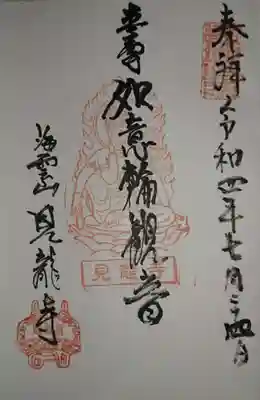 奉拝 令和四年七月二四日
本尊 如意輪觀音
海雲山 見龍寺
見龍寺